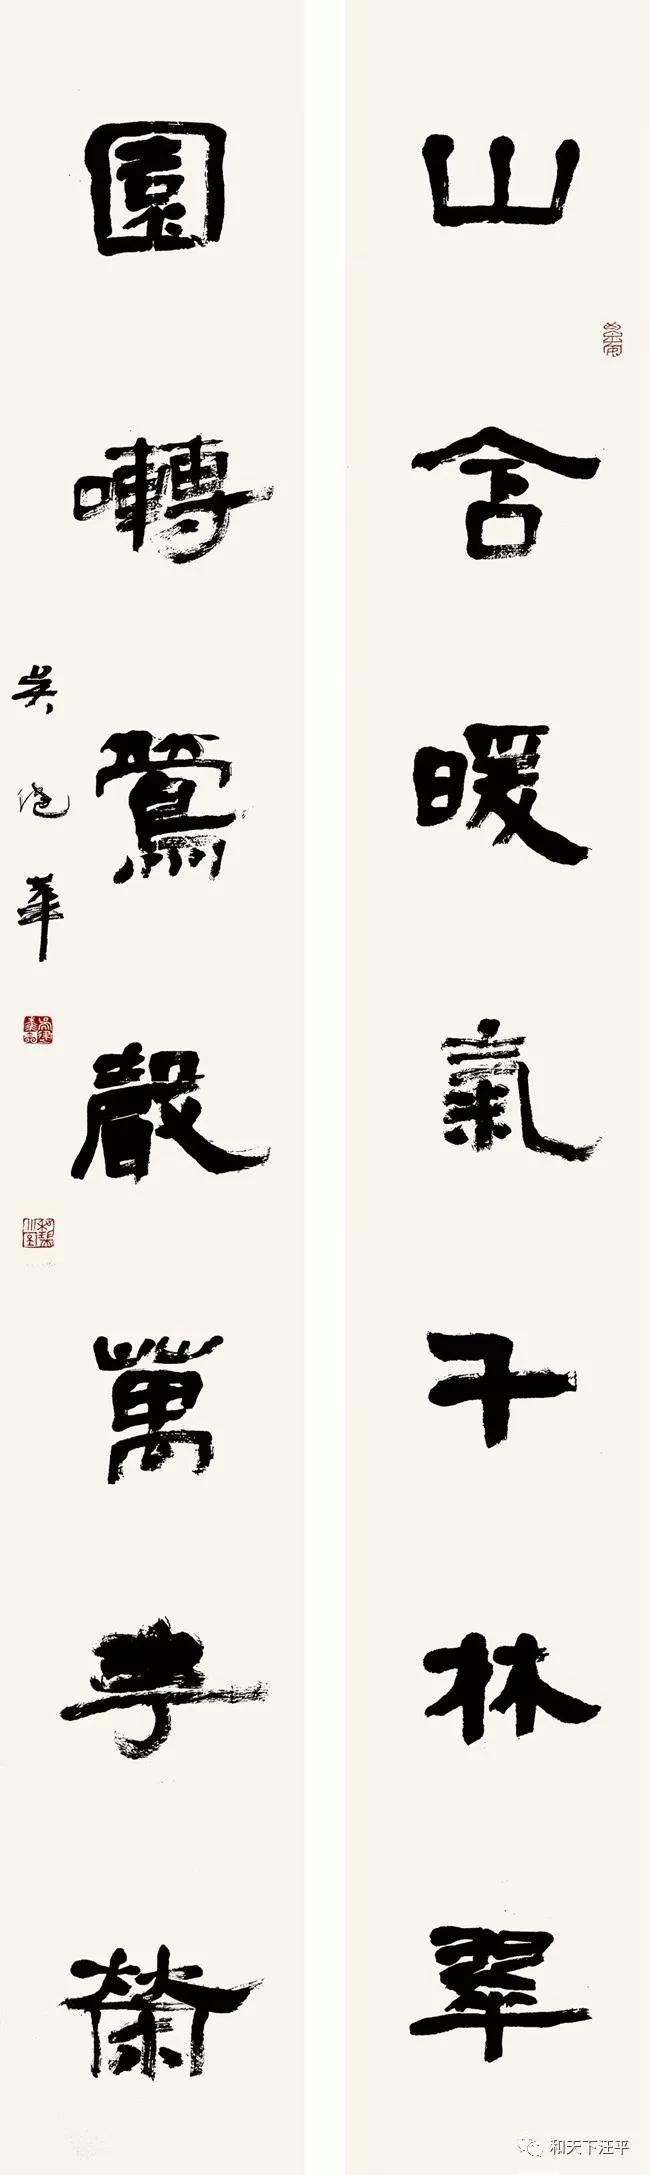 山含暖氣千林翠
園囀鶯聲萬事榮
吳 華
和天下汪平